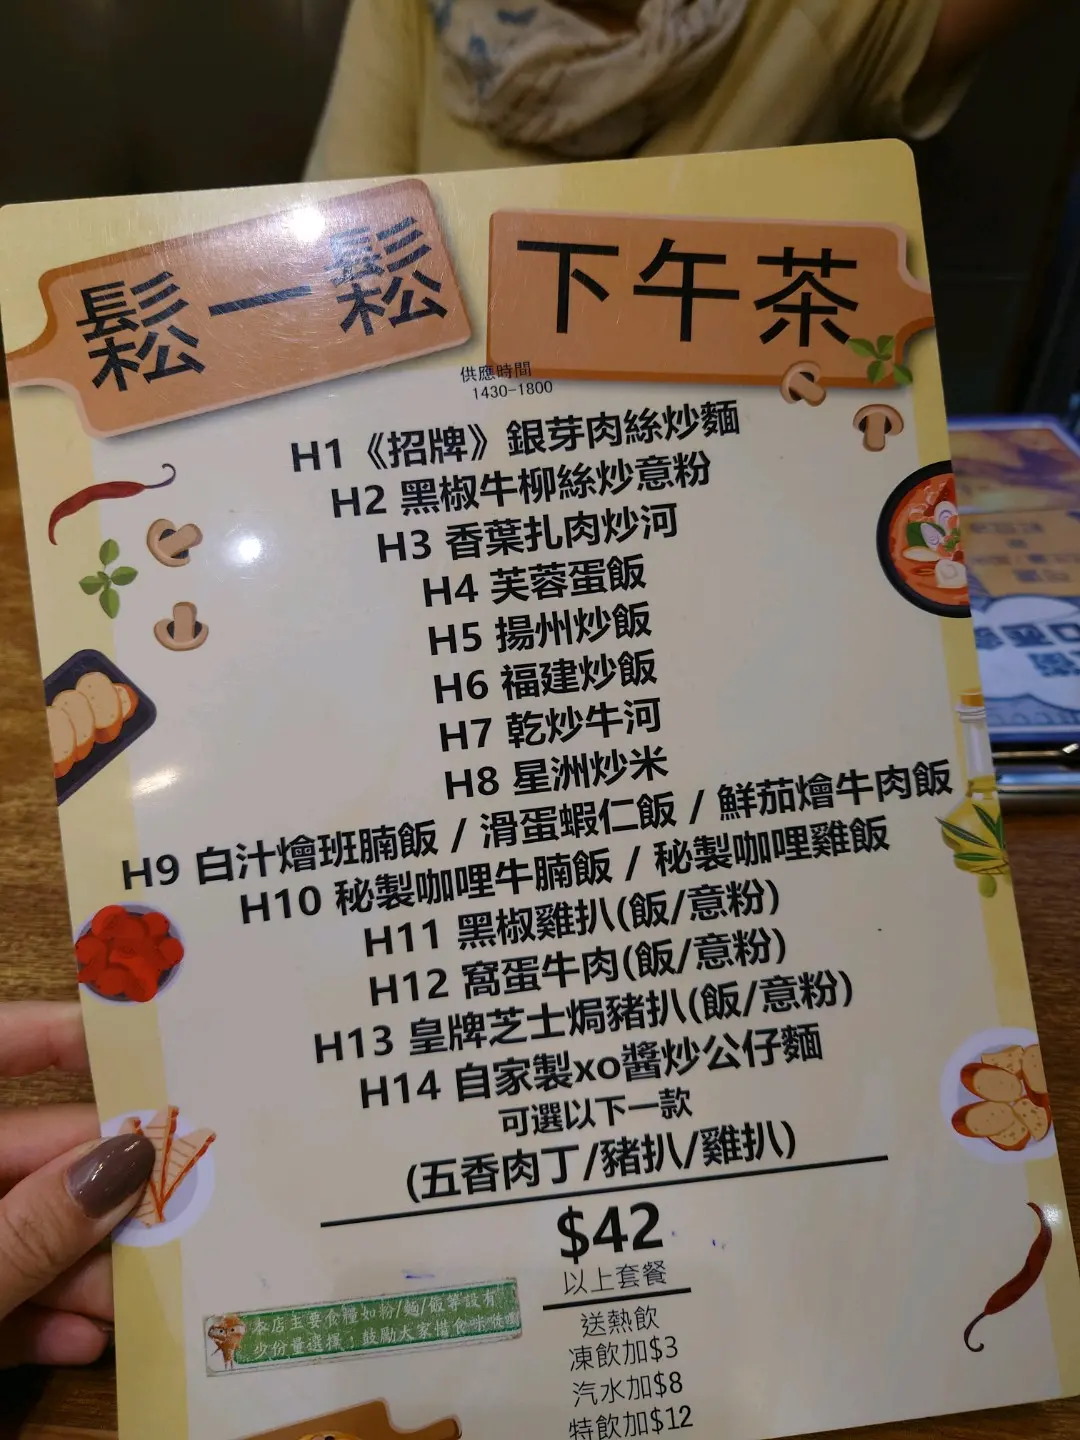 鬆一鬆 下午茶
供應時間
1430-1800
H1《招牌》銀芽肉絲炒麵
H2 黑椒牛柳絲炒意粉
H3 香葉扎肉炒河
H4 芙蓉蛋飯
H5 揚州炒飯
H6 福建炒飯
H7 乾炒牛河
H8 星洲炒米
H9 白汁燴班腩飯 / 滑蛋蝦仁飯 / 鮮茄燴牛肉飯
H10 秘製咖哩牛腩飯 / 秘製咖哩雞飯
H11 黑椒雞扒(飯/意粉)
H12 窩蛋牛肉(飯/意粉)
H13 皇牌芝士焗豬扒(飯/意粉)
H14 自家製xo醬炒公仔麵
可選以下一款
(五香肉丁/豬扒/雞扒)
$42
以上套餐
送熱飲
凍飲加$3
汽水加$8
特飲加$12
本店主要食糧如粉/麵/飯等設有
少份量選擇，鼓勵大家惜食